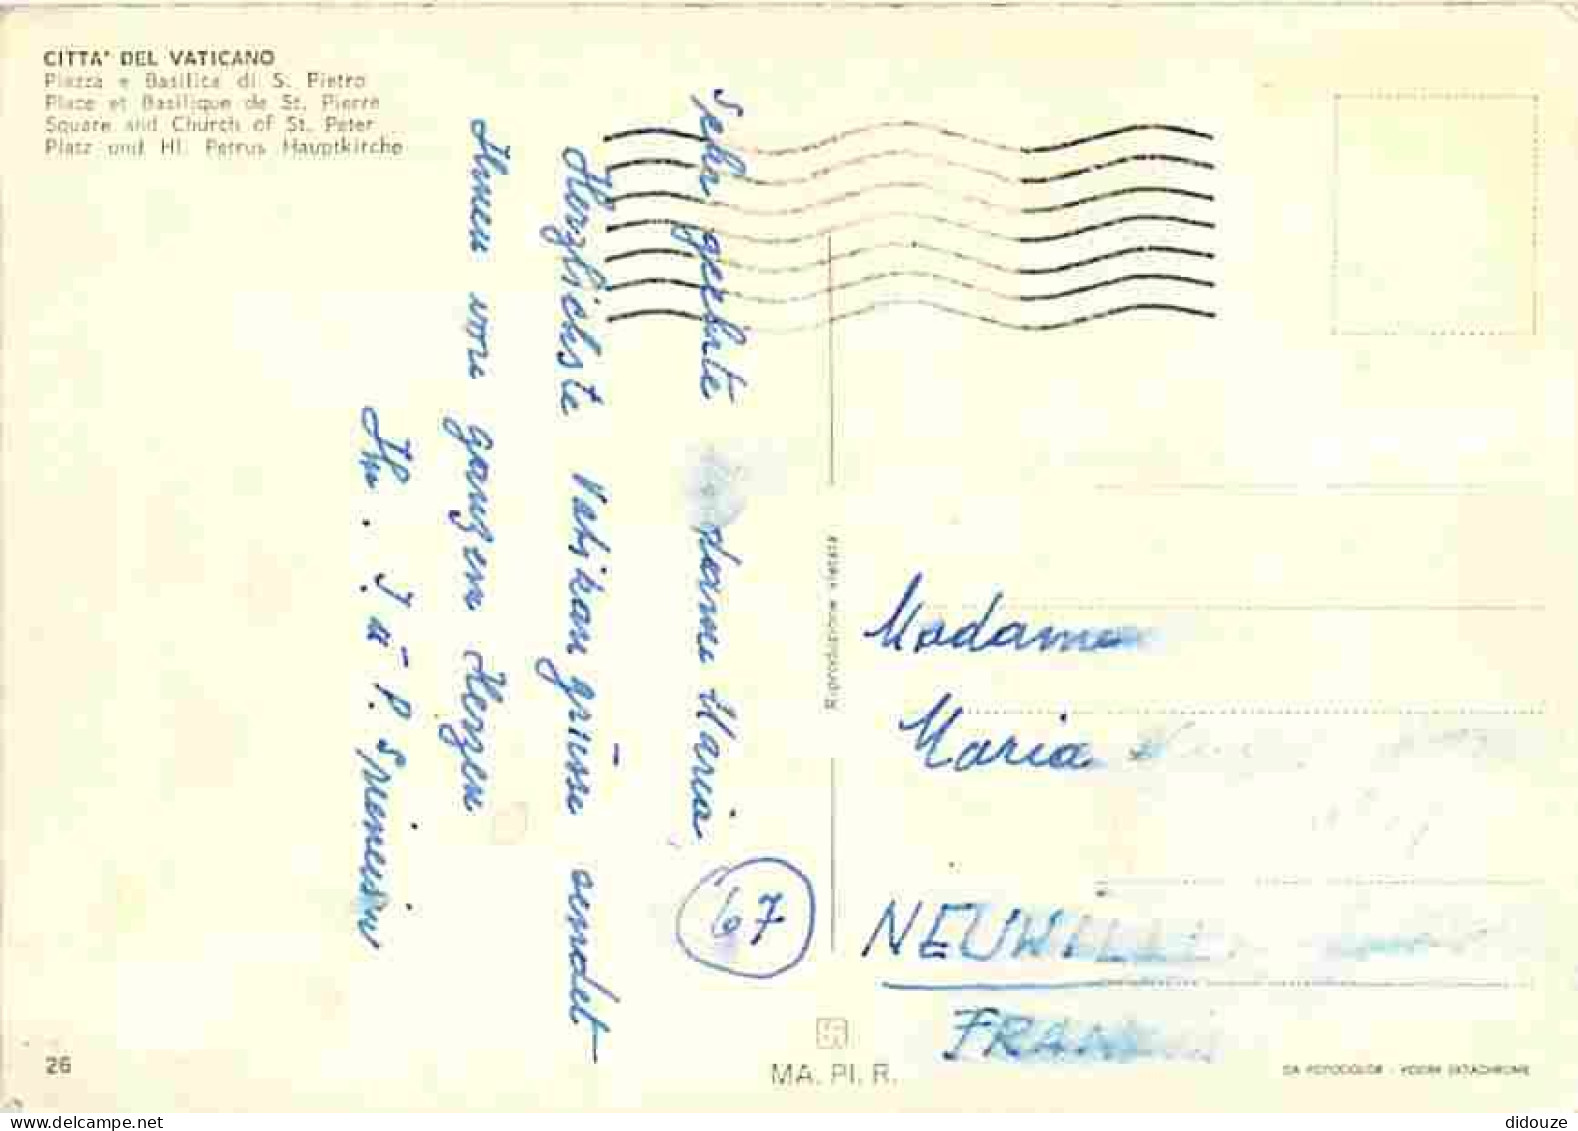 CITTA' DEL VATICANO
Piazza e Basilica di S. Pietro
Place et Basilique de St. Pierre
Square and Church of St. Peter
Platz und Hl. Petrus Hauptkirche
Sehr geehrte Mama Maria
Herzlichste Vatikangrüsse sendet
Ihnen von ganzem Herzen
Ihr. J. P.
Riproduzione vietata
Madame
Maria
67
NEUWILLER
FRANK
26
MA. PI. R.
DA FOTOCOLOR - KODAK EKTACHROME
didouze